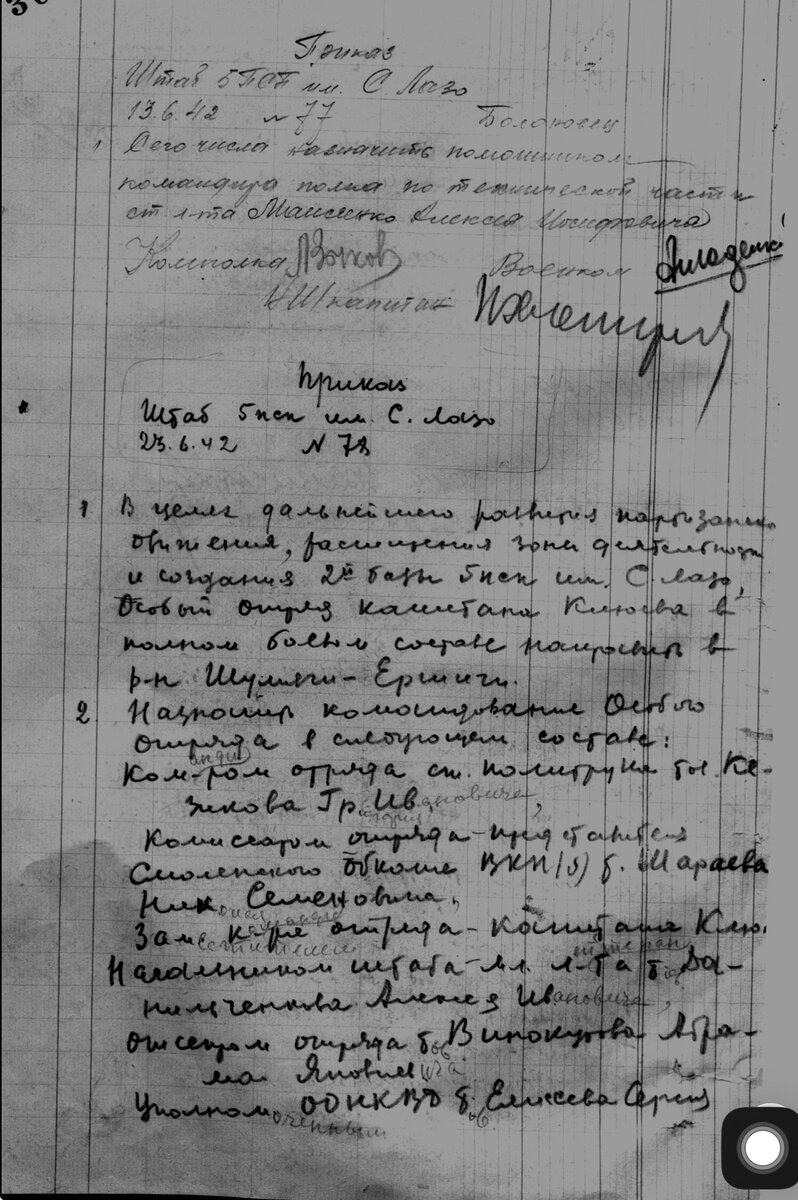 Приказ
Штаб 5 ПСП им. С Лазо
13.6.42 № 77
1 Сего числа назначить помощником
командира полка по технической части
ст л-та Моисеенко Алексея Иосифовича
Комполка
Военком
НШ капитан
Приказ
Штаб 5 псп им. С. Лазо
23.6.42 N 78
1 В целях дальнейшего развития партизанско
движения, расширения зоны деятельности
и создания 2й базы 5 псп им. С. Лазо,
Особый отряд капитана Клюева в
полном боевом составе направить в
р-н Шумячи - Ершичи.
2 Назначить командование Особого
отряда в следующем составе:
Ком-ром отряда ст. политрука тов. Ке-
зикова Гр. Ивановича,
Комиссаром отряда - представителя
Смоленского Обкома ВКП(б) т. Шараева
Ник. Семеновича,
Зам к-ра отряда - капитана Клю.
Начальником штаба - мл. л-та т. Да-
нильченкова Алексея Ивановича,
отряда тов Винокурова Абра-
ма Яковлевича
Уполномоченным ОО НКВД тов Елисеева Сергея